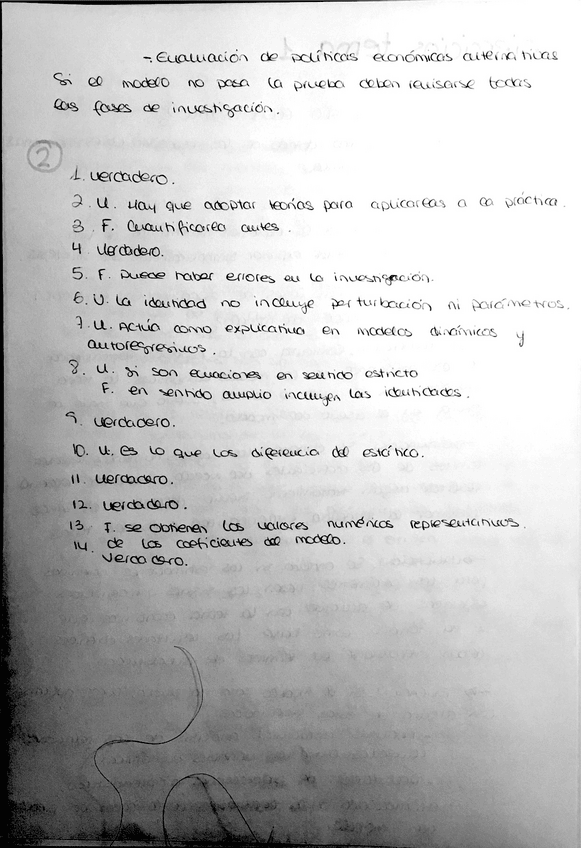 -. Evaluación de políticas económicas alternativas
Si el modelo no pasa la prueba deben revisarse todas
las fases de investigación.
2
1. Verdadero.
2. V. Hay que adoptar teorías para aplicarlas a la práctica.
3 F. Cuantificarla antes.
4 Verdadero.
5. F. Puede haber errores en la investigación.
6. V. La identidad no incluye perturbación ni parámetros.
7. V. Actúa como explicativa en modelos dinámicos y
autoregresivos.
8. V. Si son ecuaciones en sentido estricto
F. en sentido amplio incluyen las identidades.
9. Verdadero.
10. V. es lo que los diferencia del estático.
11. Verdadero.
12. Verdadero.
13 F. se obtienen los valores numéricos representativos.
14. de los coeficientes del modelo.
Verdadero.